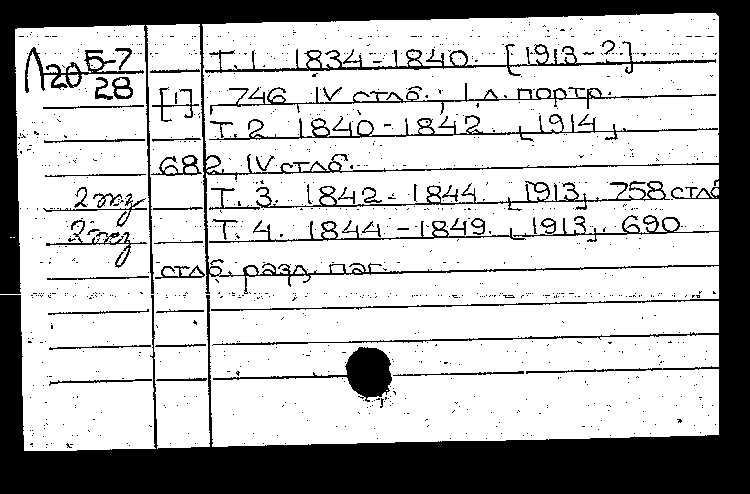 Л20 Б-7
28
Т. 1. 1834-1840. [1913-?].
[1], 746, IV стлб.; 1 л. портр.
Т. 2. 1840-1842. [1914].
682, IV стлб.
2 экз Т. 3. 1842-1844. [1913]. 758 стлб
2 экз Т. 4. 1844-1849. [1913]. 690
стлб. разд. паг.